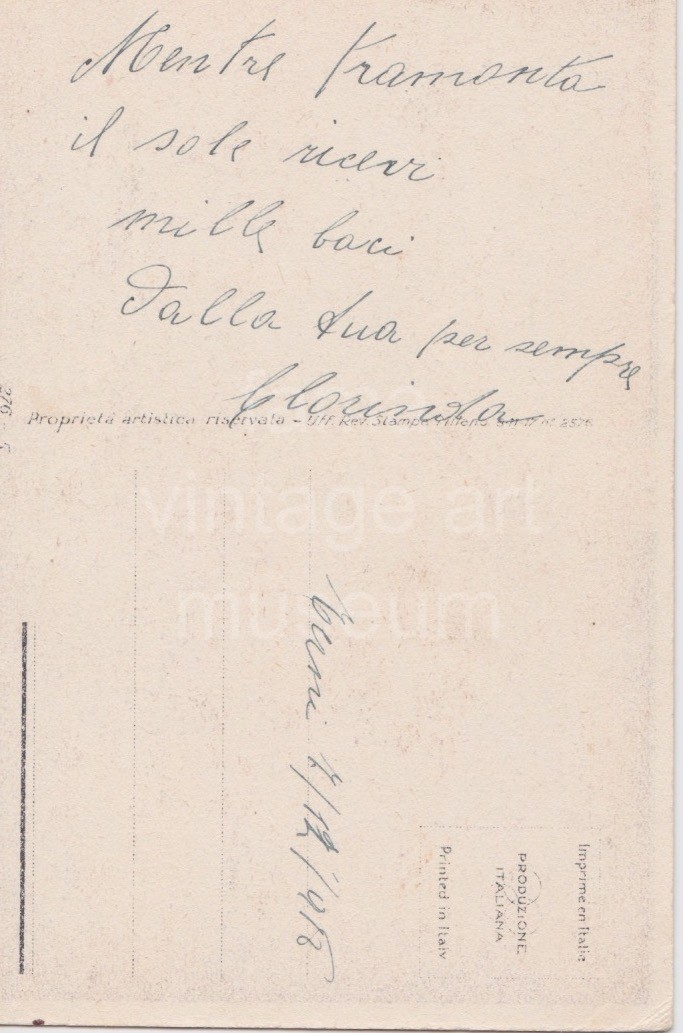 Mentre tramonta
il sole ricevi
mille baci
Dalla tua per sempre
Clorinda
Proprietà artistica riservata - Uff. Rev. Stampa Milano
vintage art
museum
Terni
Imprimé en Italie
PRODUZIONE
ITALIANA
Printed in Italy